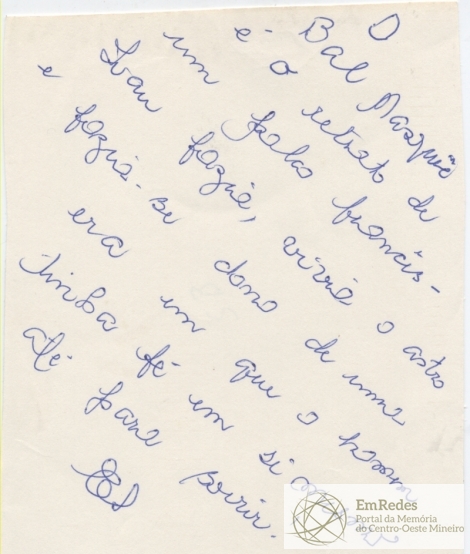 O
Bal Masquê
é o retrato de
um palco francês -
Ivan fazia, vivia o astro
e fazia-se dono de uma
era em que o homem
tinha fé em si
até para sorrir.
EmRedes
Portal da Memória
do Centro-Oeste Mineiro